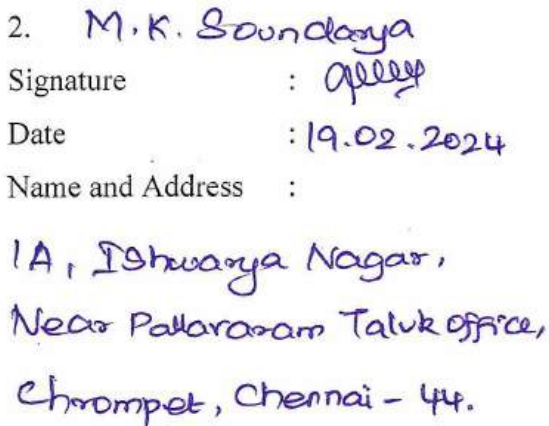 2. M.K. Soundarya
Signature :
Date : 19.02.2024
Name and Address :
1A, Ishwarya Nagar,
Near Pallavaram Taluk office,
Chrompet, Chennai - 44.